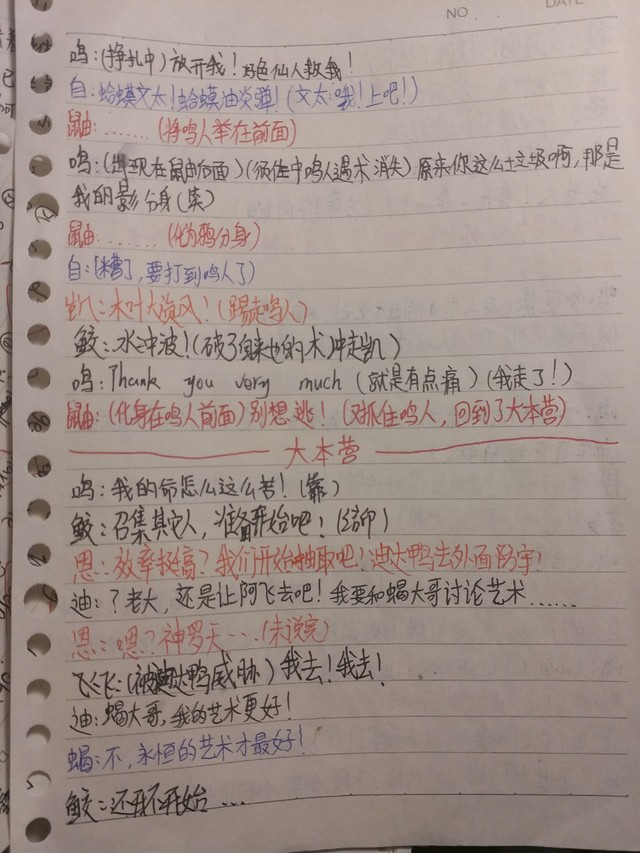 NO. . . DATE
鸣:(挣扎中)放开我!好色仙人救我!
自:蛤蟆文太!蛤蟆油炎弹!(文太:哦!上吧!)
鼠由:……(将鸣人举在前面)
鸣:(出现在鼠由后面)(须佐中鸣人遇术消失)原来你这么垃圾啊,那是
我的影分身(笑)
鼠由:……(化为鸦分身)
自:糟了,要打到鸣人了)
凯:木叶大旋风!(踢走鸣人)
鲛:水冲波!(破了自来也的术冲走凯)
鸣:Thank you very much(就是有点痛)(我走了!)
鼠由:(化身在鸣人前面)别想逃!(又抓住鸣人,回到了大本营)
大本营
鸣:我的命怎么这么苦!(靠)
鲛:召集其它人,准备开始吧!(结印)
恩:效率挺高?我们开始抽取吧!迪达鸭去外面防守!
迪:?老大,还是让阿飞去吧!我要和蝎大哥讨论艺术……
恩:嗯?神罗天…(未说完)
飞飞:(被迪达鸭威胁)我去!我去!
迪:蝎大哥,我的艺术更好!
蝎:不,永恒的艺术才最好!
鲛:还不开始…